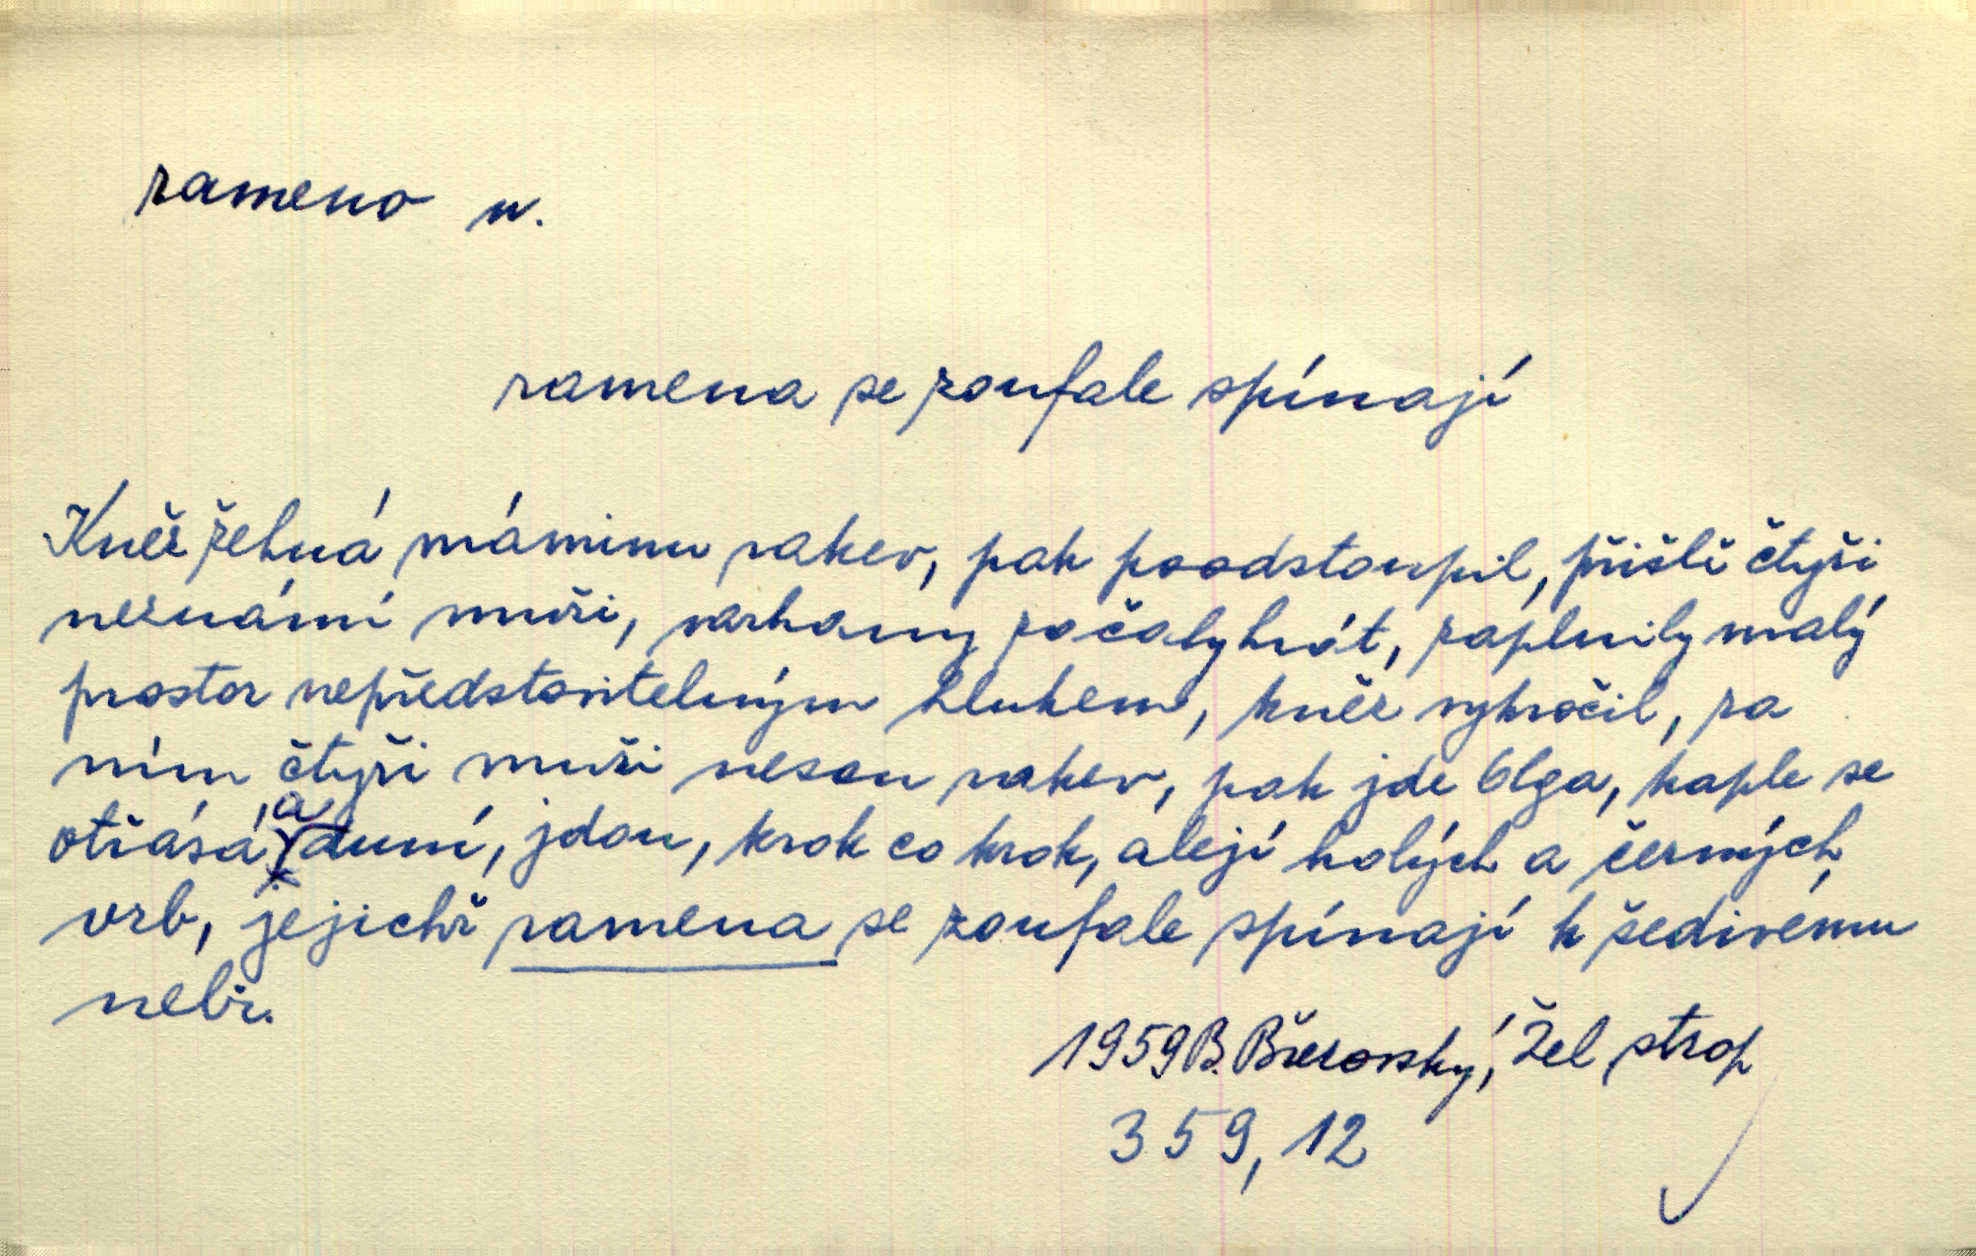 rameno n.
ramena se zoufale spínají
Kněz žehná máminu rakev, pak poodstoupil, přišli čtyři
neznámí muži, varhany začaly hrát, zaplnily malý
prostor nepředstavitelným hlukem, kněz vykročil, za
ním čtyři muži nesou rakev, pak jde Olga, kaple se
otřásá, a duní, jdou, krok co krok, alejí holých a černých
vrb, jejichž ramena se zoufale spínají k šedivému
nebi.
1959 B. Březovský, Žel strop
359, 12